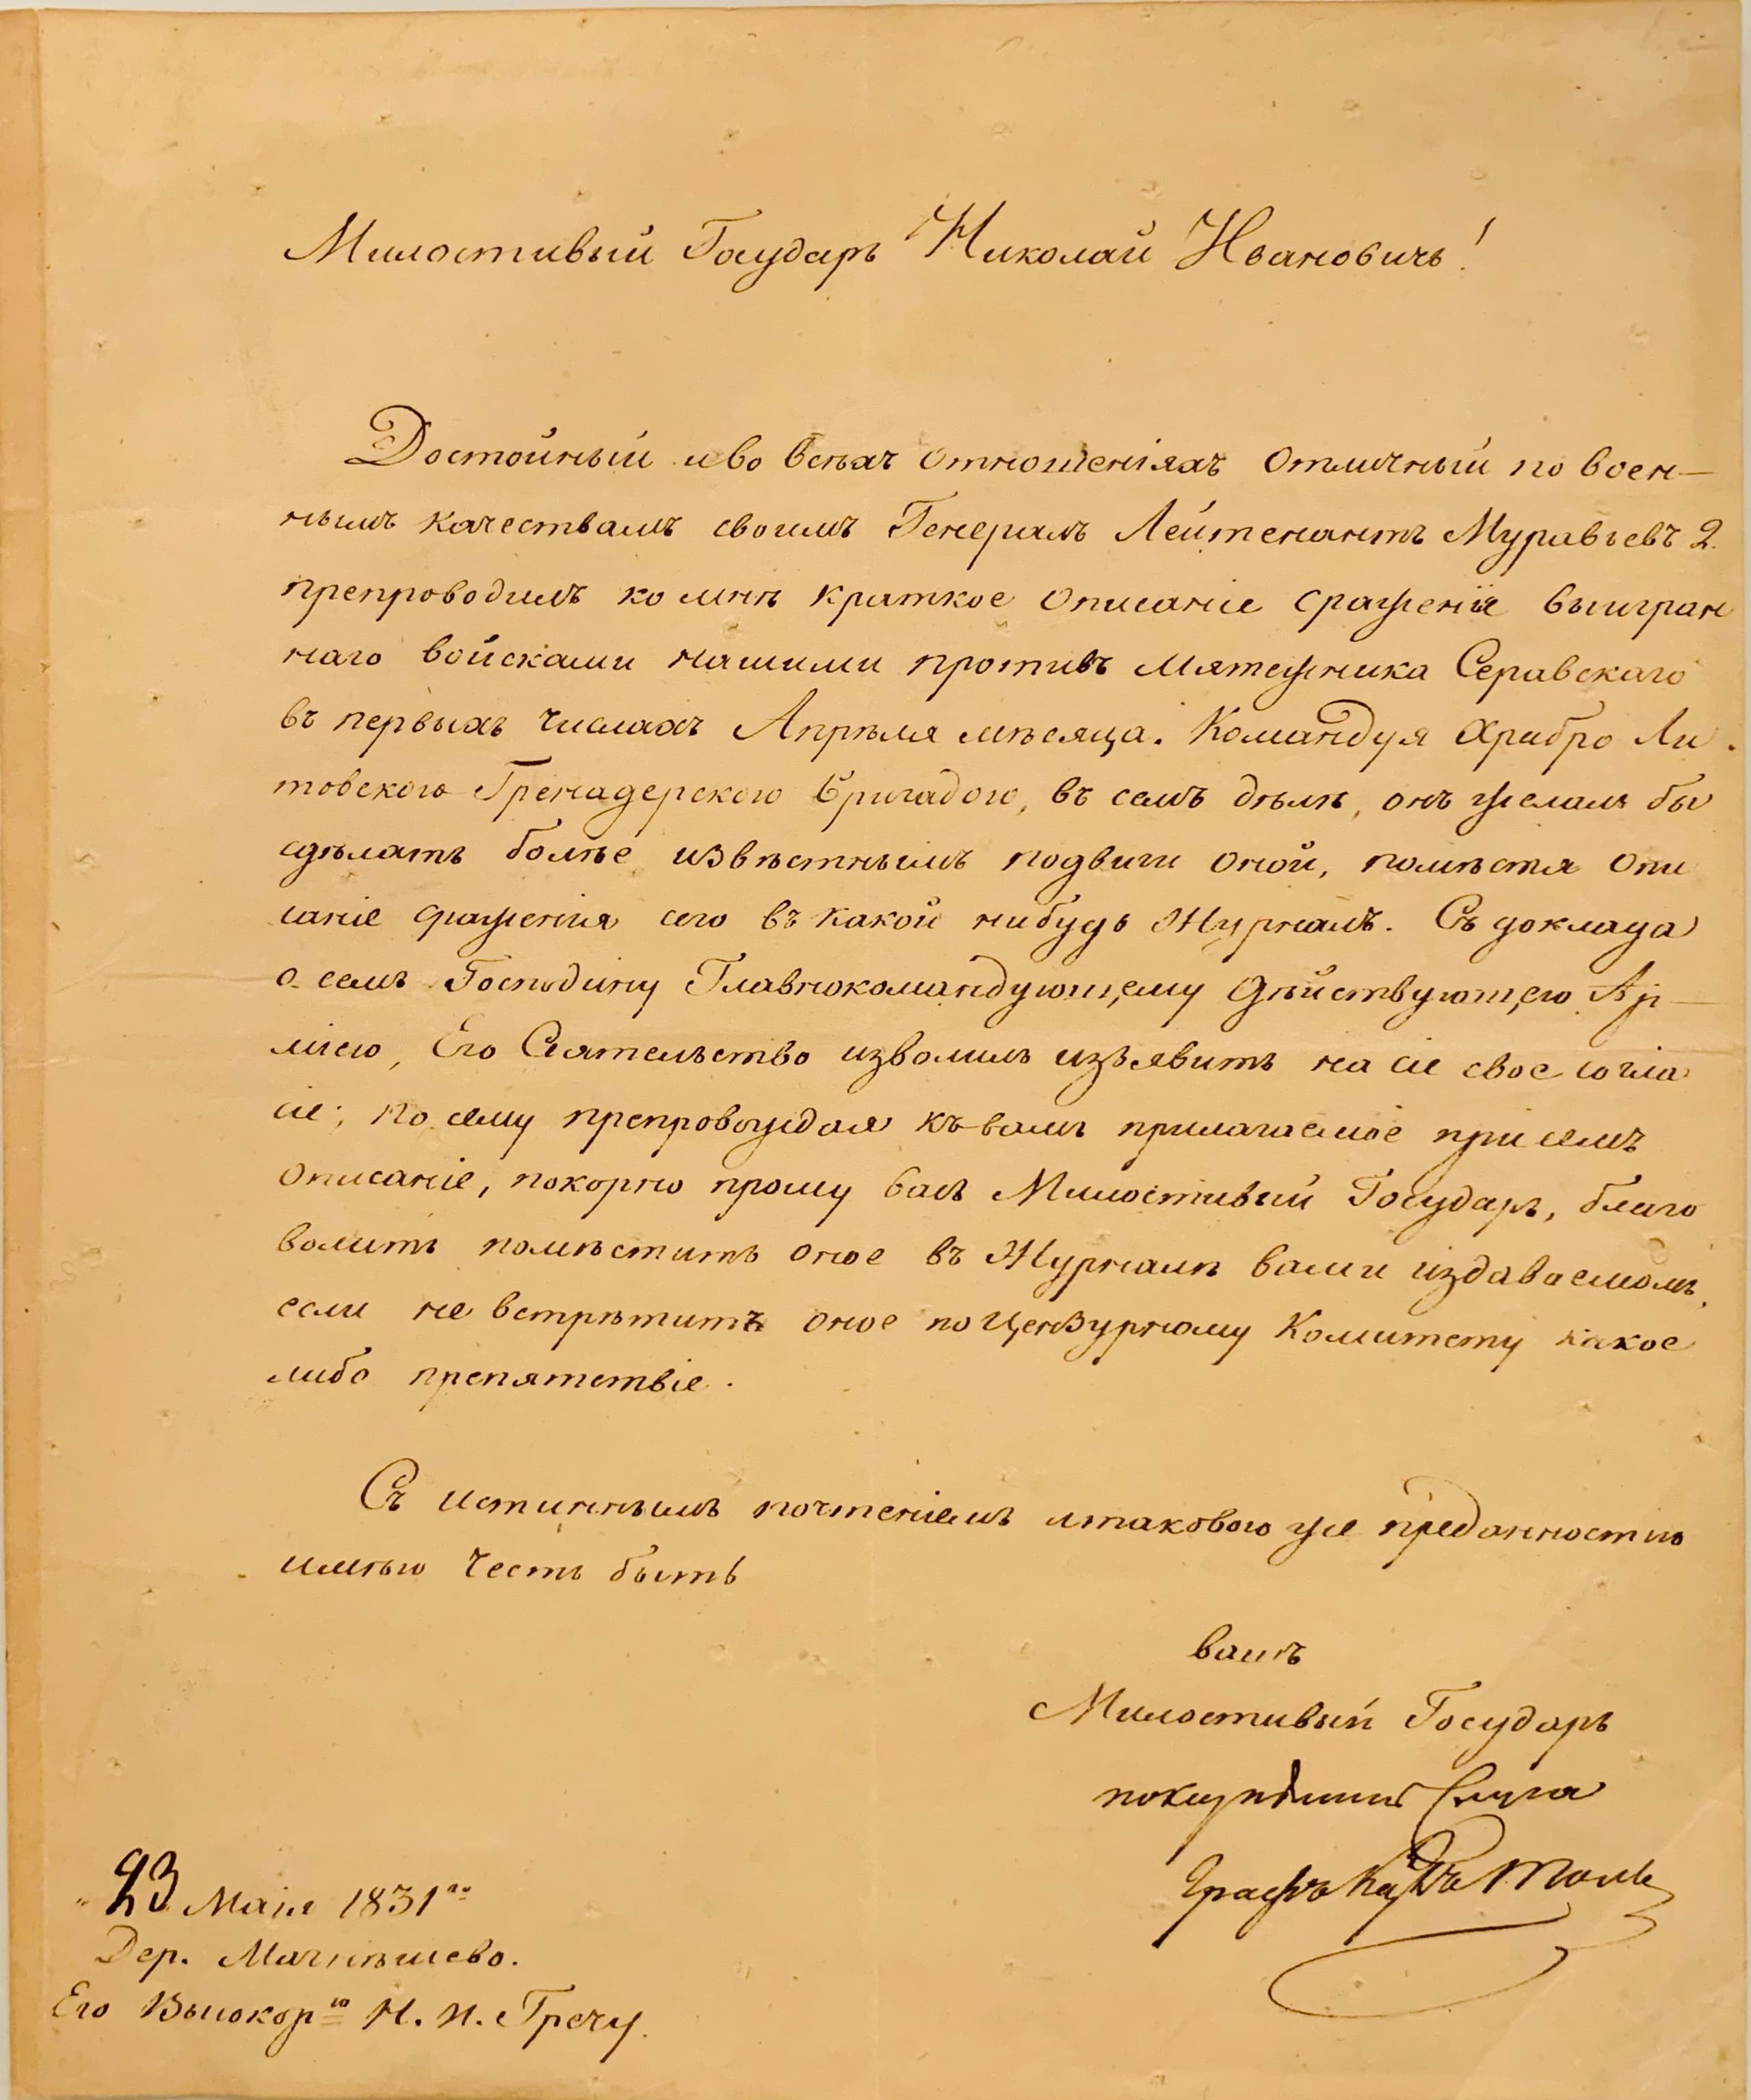 Милостивый Государь Николай Ивановичь!
Достойный и во всѣхъ отношеніяхъ отличный по воен-
нымъ качествамъ своимъ Генералъ Лейтенантъ Муравьевъ 2.
препроводилъ ко мнѣ краткое описаніе сраженія выигран
наго войсками нашими противъ мятежника Серавскаго
въ первыхъ числахъ Апрѣля мѣсяца. Командуя храбро Ли-
товскою Гренадерскою бригадою, въ семъ дѣлѣ, онъ желалъ бы
сдѣлать болѣе извѣстнымъ подвиги оной, помѣстя опи
саніе сраженія сего въ какой нибудь Журналъ. Съ доклада
о семъ Господину Главнокомандующему дѣйствующею Ар-
міею, Его Сіятельство изволилъ изъявить на сіе свое согла
сіе; по сему препровождая къ вамъ прилагаемое при семъ
описаніе, покорно прошу васъ Милостивый Государь, благо
волить помѣстить оное въ Журналѣ вами издаваемомъ,
если не встрѣтитъ оное по Цензурному Комитету какое
либо препятствіе.
Съ истиннымъ почтеніемъ и таковою же преданностію
имѣю честь быть
вашъ
Милостивый Государь
покорнѣйшій Слуга
Графъ Карлъ Толь
"23 Маія 1831го
Дер. Магнѣшево.
Его Высокорію Н. И. Гречу.